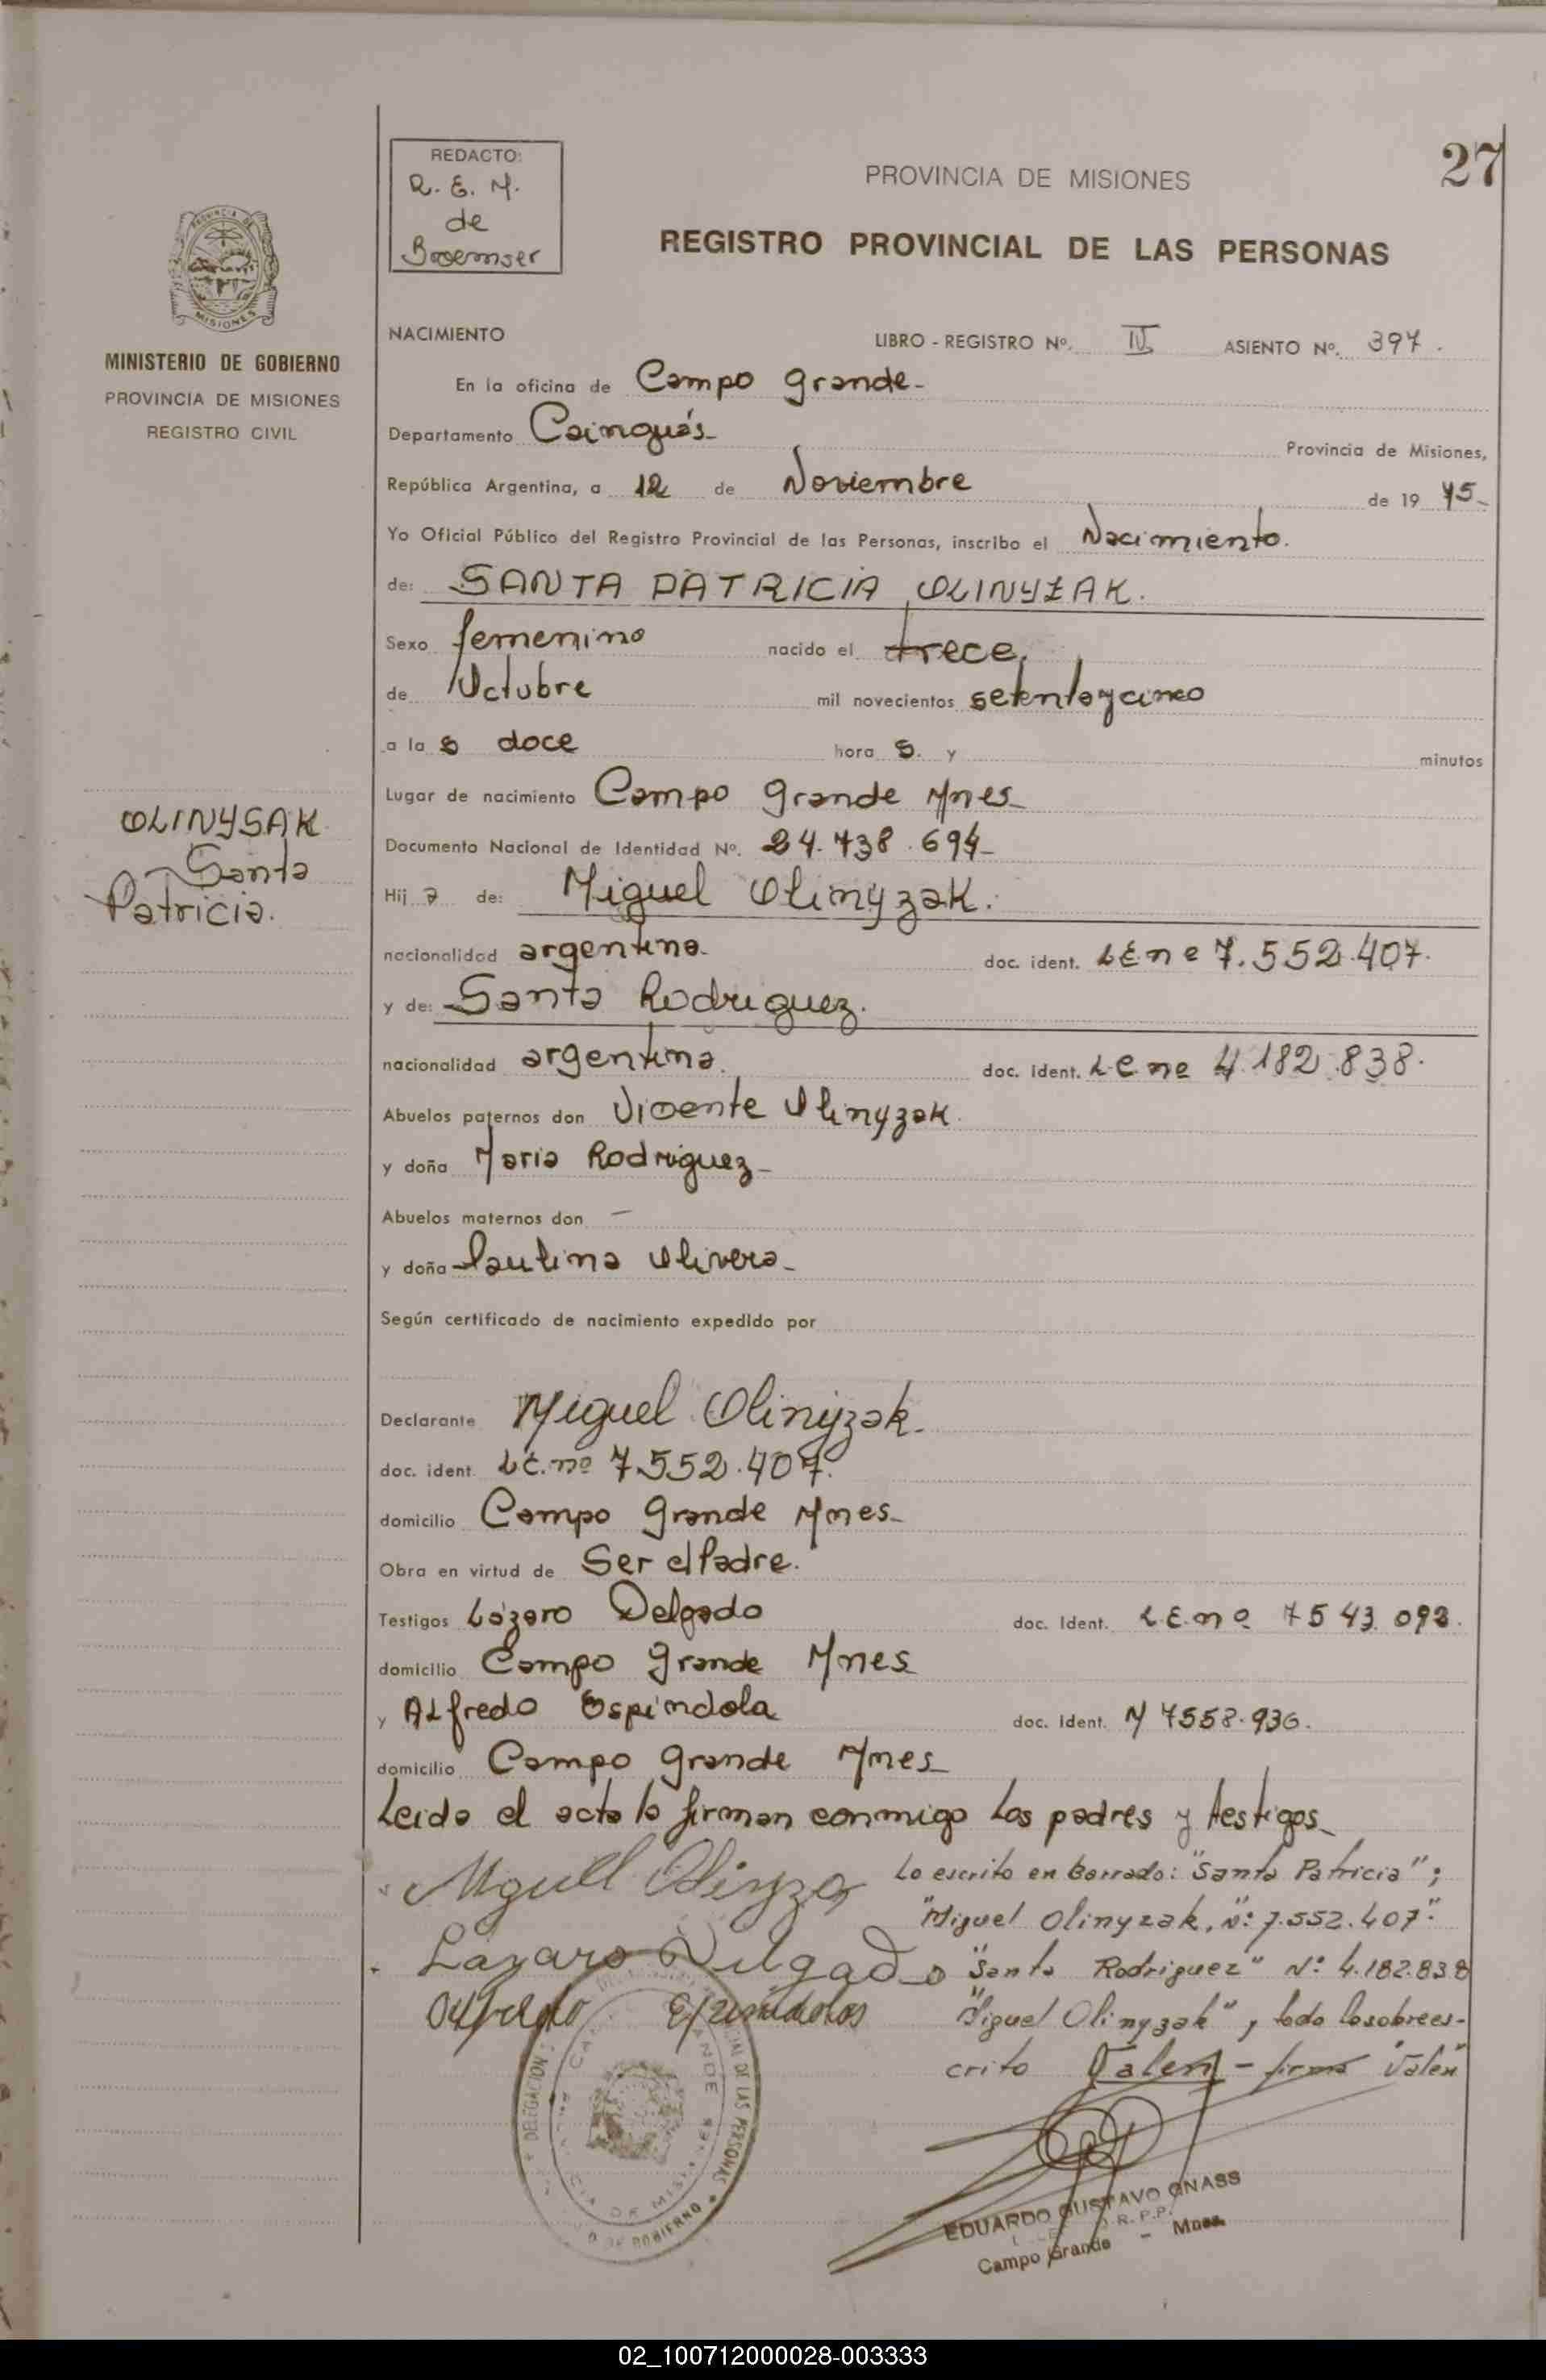 27
REDACTO:
R. E. M.
de
Boemser
PROVINCIA DE MISIONES
REGISTRO PROVINCIAL DE LAS PERSONAS
PROVINCIA DE
MISIONES
MINISTERIO DE GOBIERNO
PROVINCIA DE MISIONES
REGISTRO CIVIL
NACIMIENTO LIBRO - REGISTRO Nº. IV ASIENTO Nº. 397.
En la oficina de Campo Grande-
Departamento Cainguás- Provincia de Misiones,
República Argentina, a 12 de Noviembre de 19 75-
Yo Oficial Público del Registro Provincial de las Personas, inscribo el Nacimiento.
de: SANTA PATRICIA OLINYZAK.
Sexo femenino nacido el trece.
de Octubre mil novecientos setentaycinco
a la s doce hora s. y minutos
Lugar de nacimiento Campo Grande Mnes-
OLINYSAK
Santa
Patricia.
Documento Nacional de Identidad Nº. 24.738.694-
Hij a de: Miguel Olinyzak.
nacionalidad argentina. doc. ident. L.E.nº 7.552.407.
y de: Santa Rodriguez.
nacionalidad argentina. doc. ident. L.C nº 4.182.838.
Abuelos paternos don Vicente Olinyzak.
y doña Maria Rodriguez-
Abuelos maternos don —
y doña Paulina Olivera-
Según certificado de nacimiento expedido por
Declarante Miguel Olinyzak.
doc. ident. L.E.nº 7.552.407.
domicilio Campo Grande Mnes-
Obra en virtud de Ser el Padre.
Testigos Lázaro Delgado doc. Ident. L.E.nº 7543.092.
domicilio Campo Grande Mnes
y Alfredo Espíndola doc. Ident. M 7558.936.
domicilio Campo Grande Mnes-
Leida el acta la firman conmigo los padres y testigos-
Miguell Olinyza Lo escrito en borrado: "Santa Patricia";
"Miguel Olinyzak, Nº: 7.552.407".
Lazaro Delgado "Santa Rodriguez" Nº: 4.182.838
Espindolas "Miguel Olinyzak", todo lo sobrees-
crito Valen - firma "Valen"
DELEGACION
DE LAS PERSONAS
DE GOBIERNO
EDUARDO GUSTAVO GNASS
R.P.P.
Campo Grande - Mnes.
02_100712000028-003333